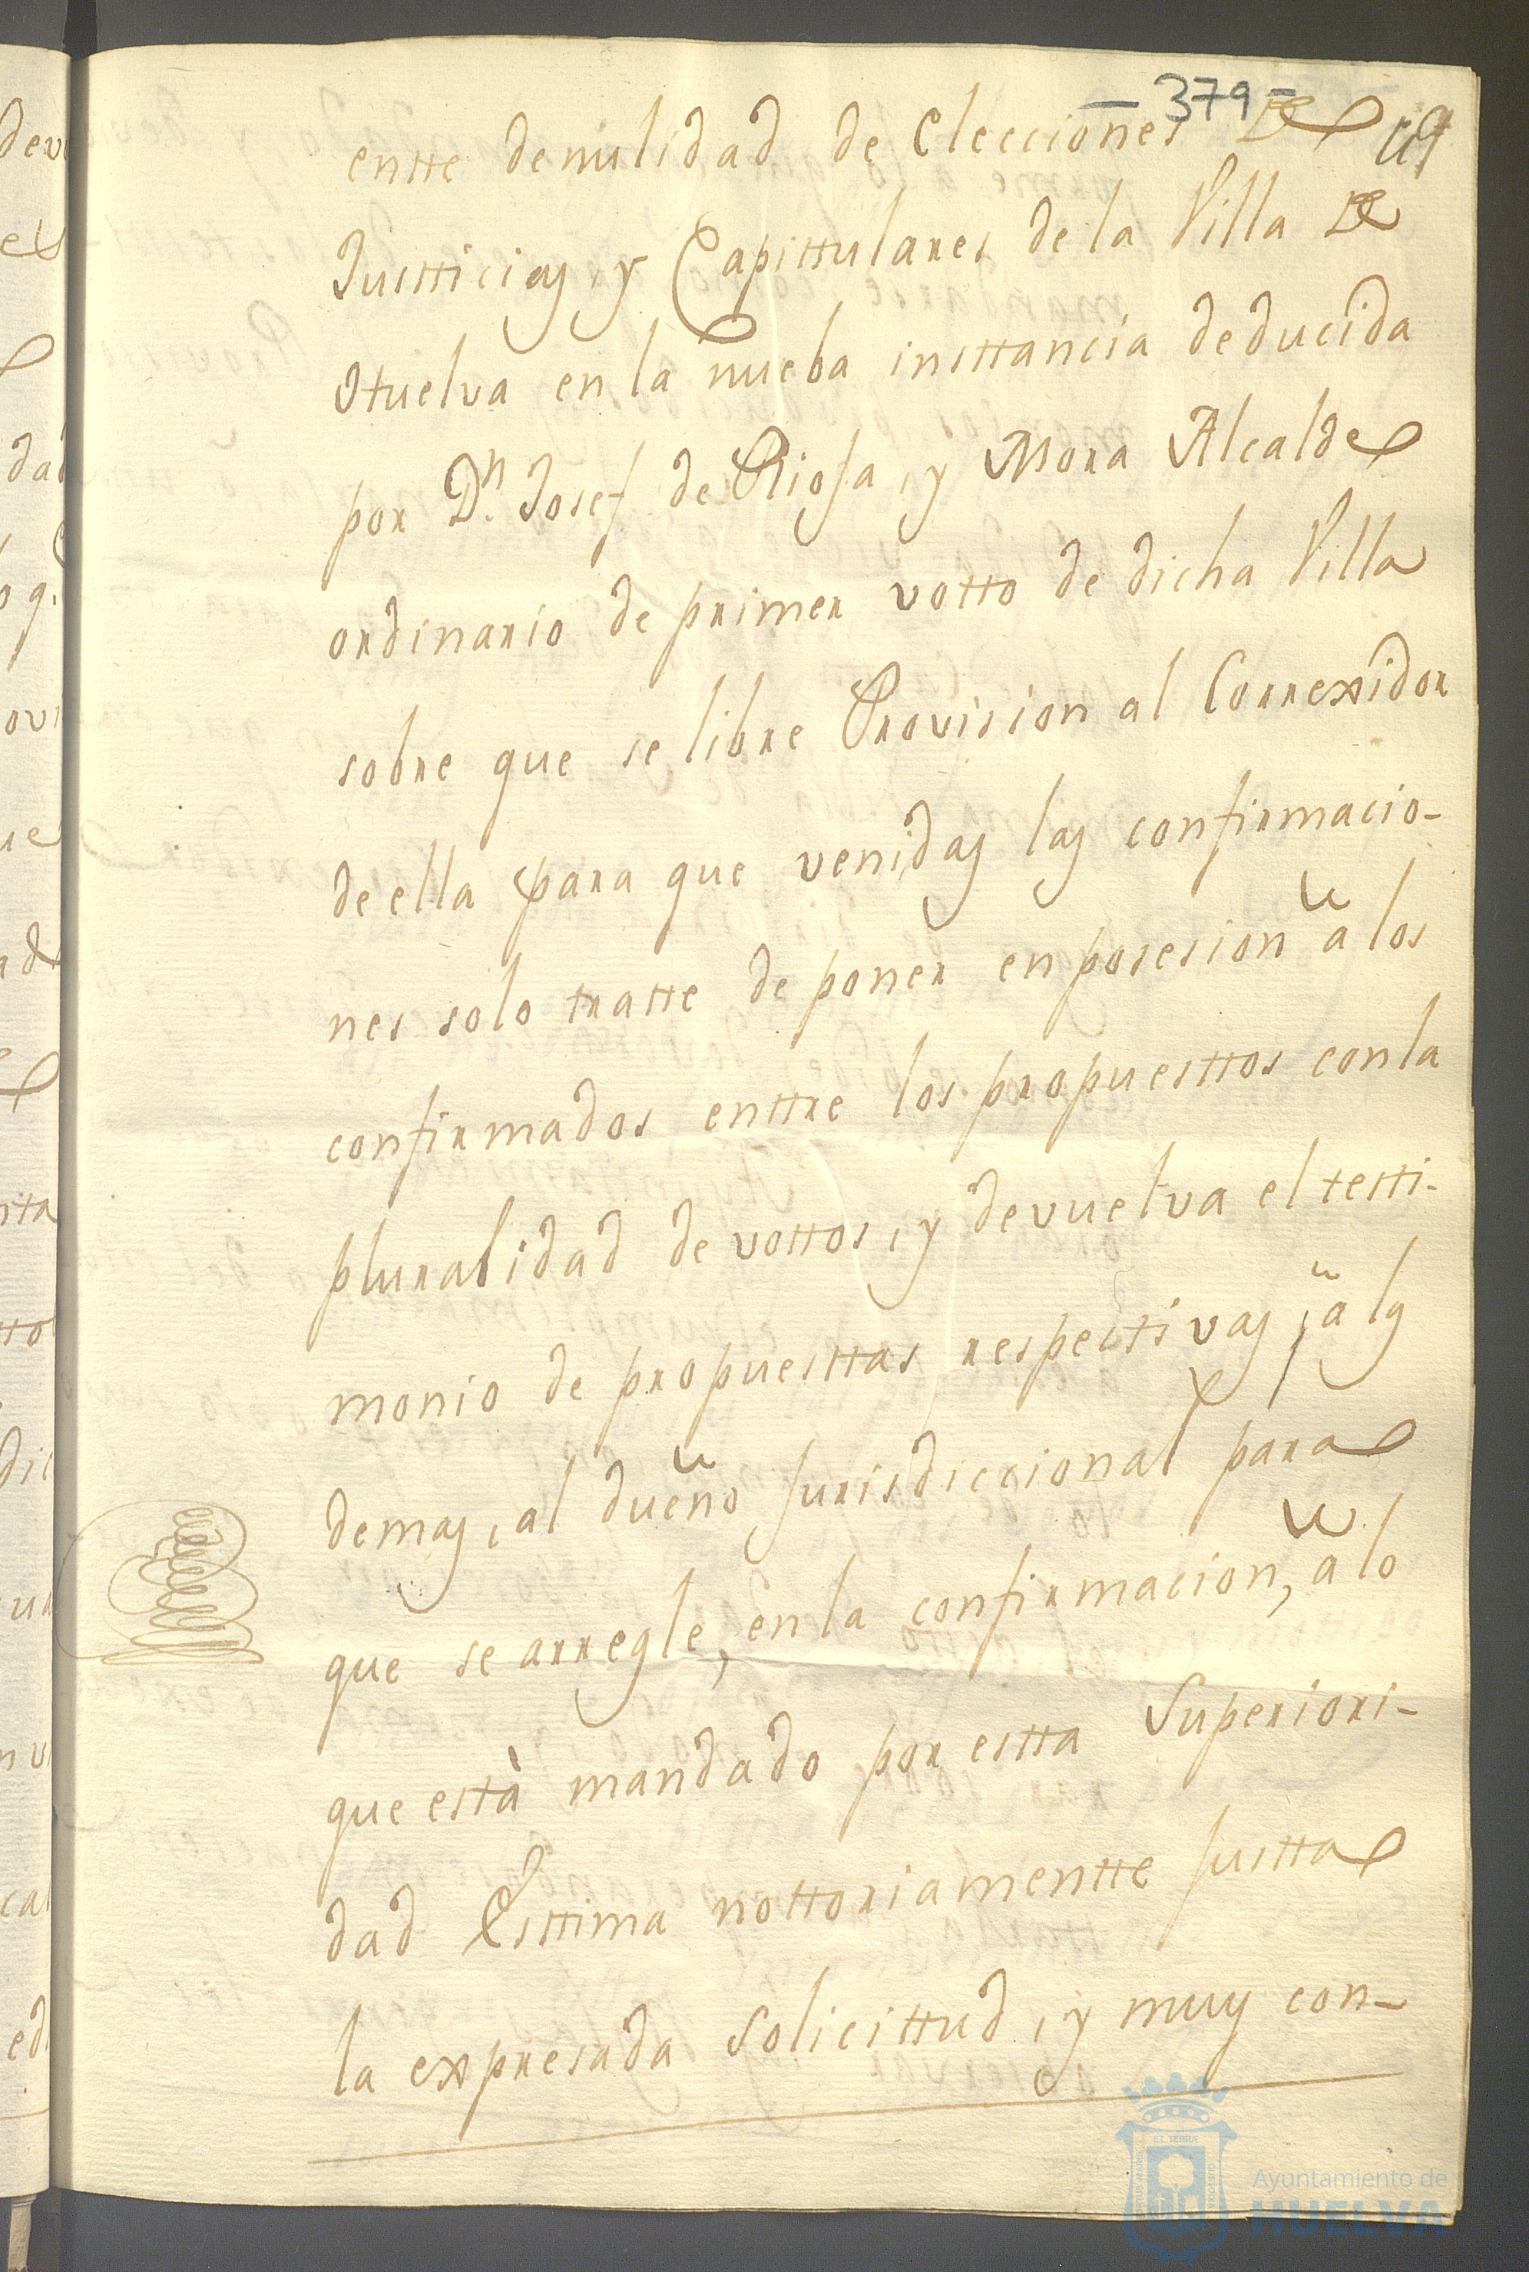 - 379 -
entte de nulidad de Elecciones De
Justticias, y Capittulares de la Villa De
Huelva en la nueba insttancia deducida
por Dn. Josef de Rioja, y Mora Alcalde
ordinario de primer votto de dicha Villa
sobre que se libre Provision al Correxidor
de ella para que venidas las confirmacio-
nes solo tratte de poner en posesion â los
confirmados enttre los propuesttos con la
pluralidad de vottos, y devuelva el testti-
monio de propuesttas respecttivas, â las
demas, al dueño jurisdiccional para
que se arregle, en la confirmacion, â lo
que està mandado por estta Superiori-
dad Esttima nottoriamentte justta
la expresada Solicittud, y muy con-
Ayuntamiento de
HUELVA